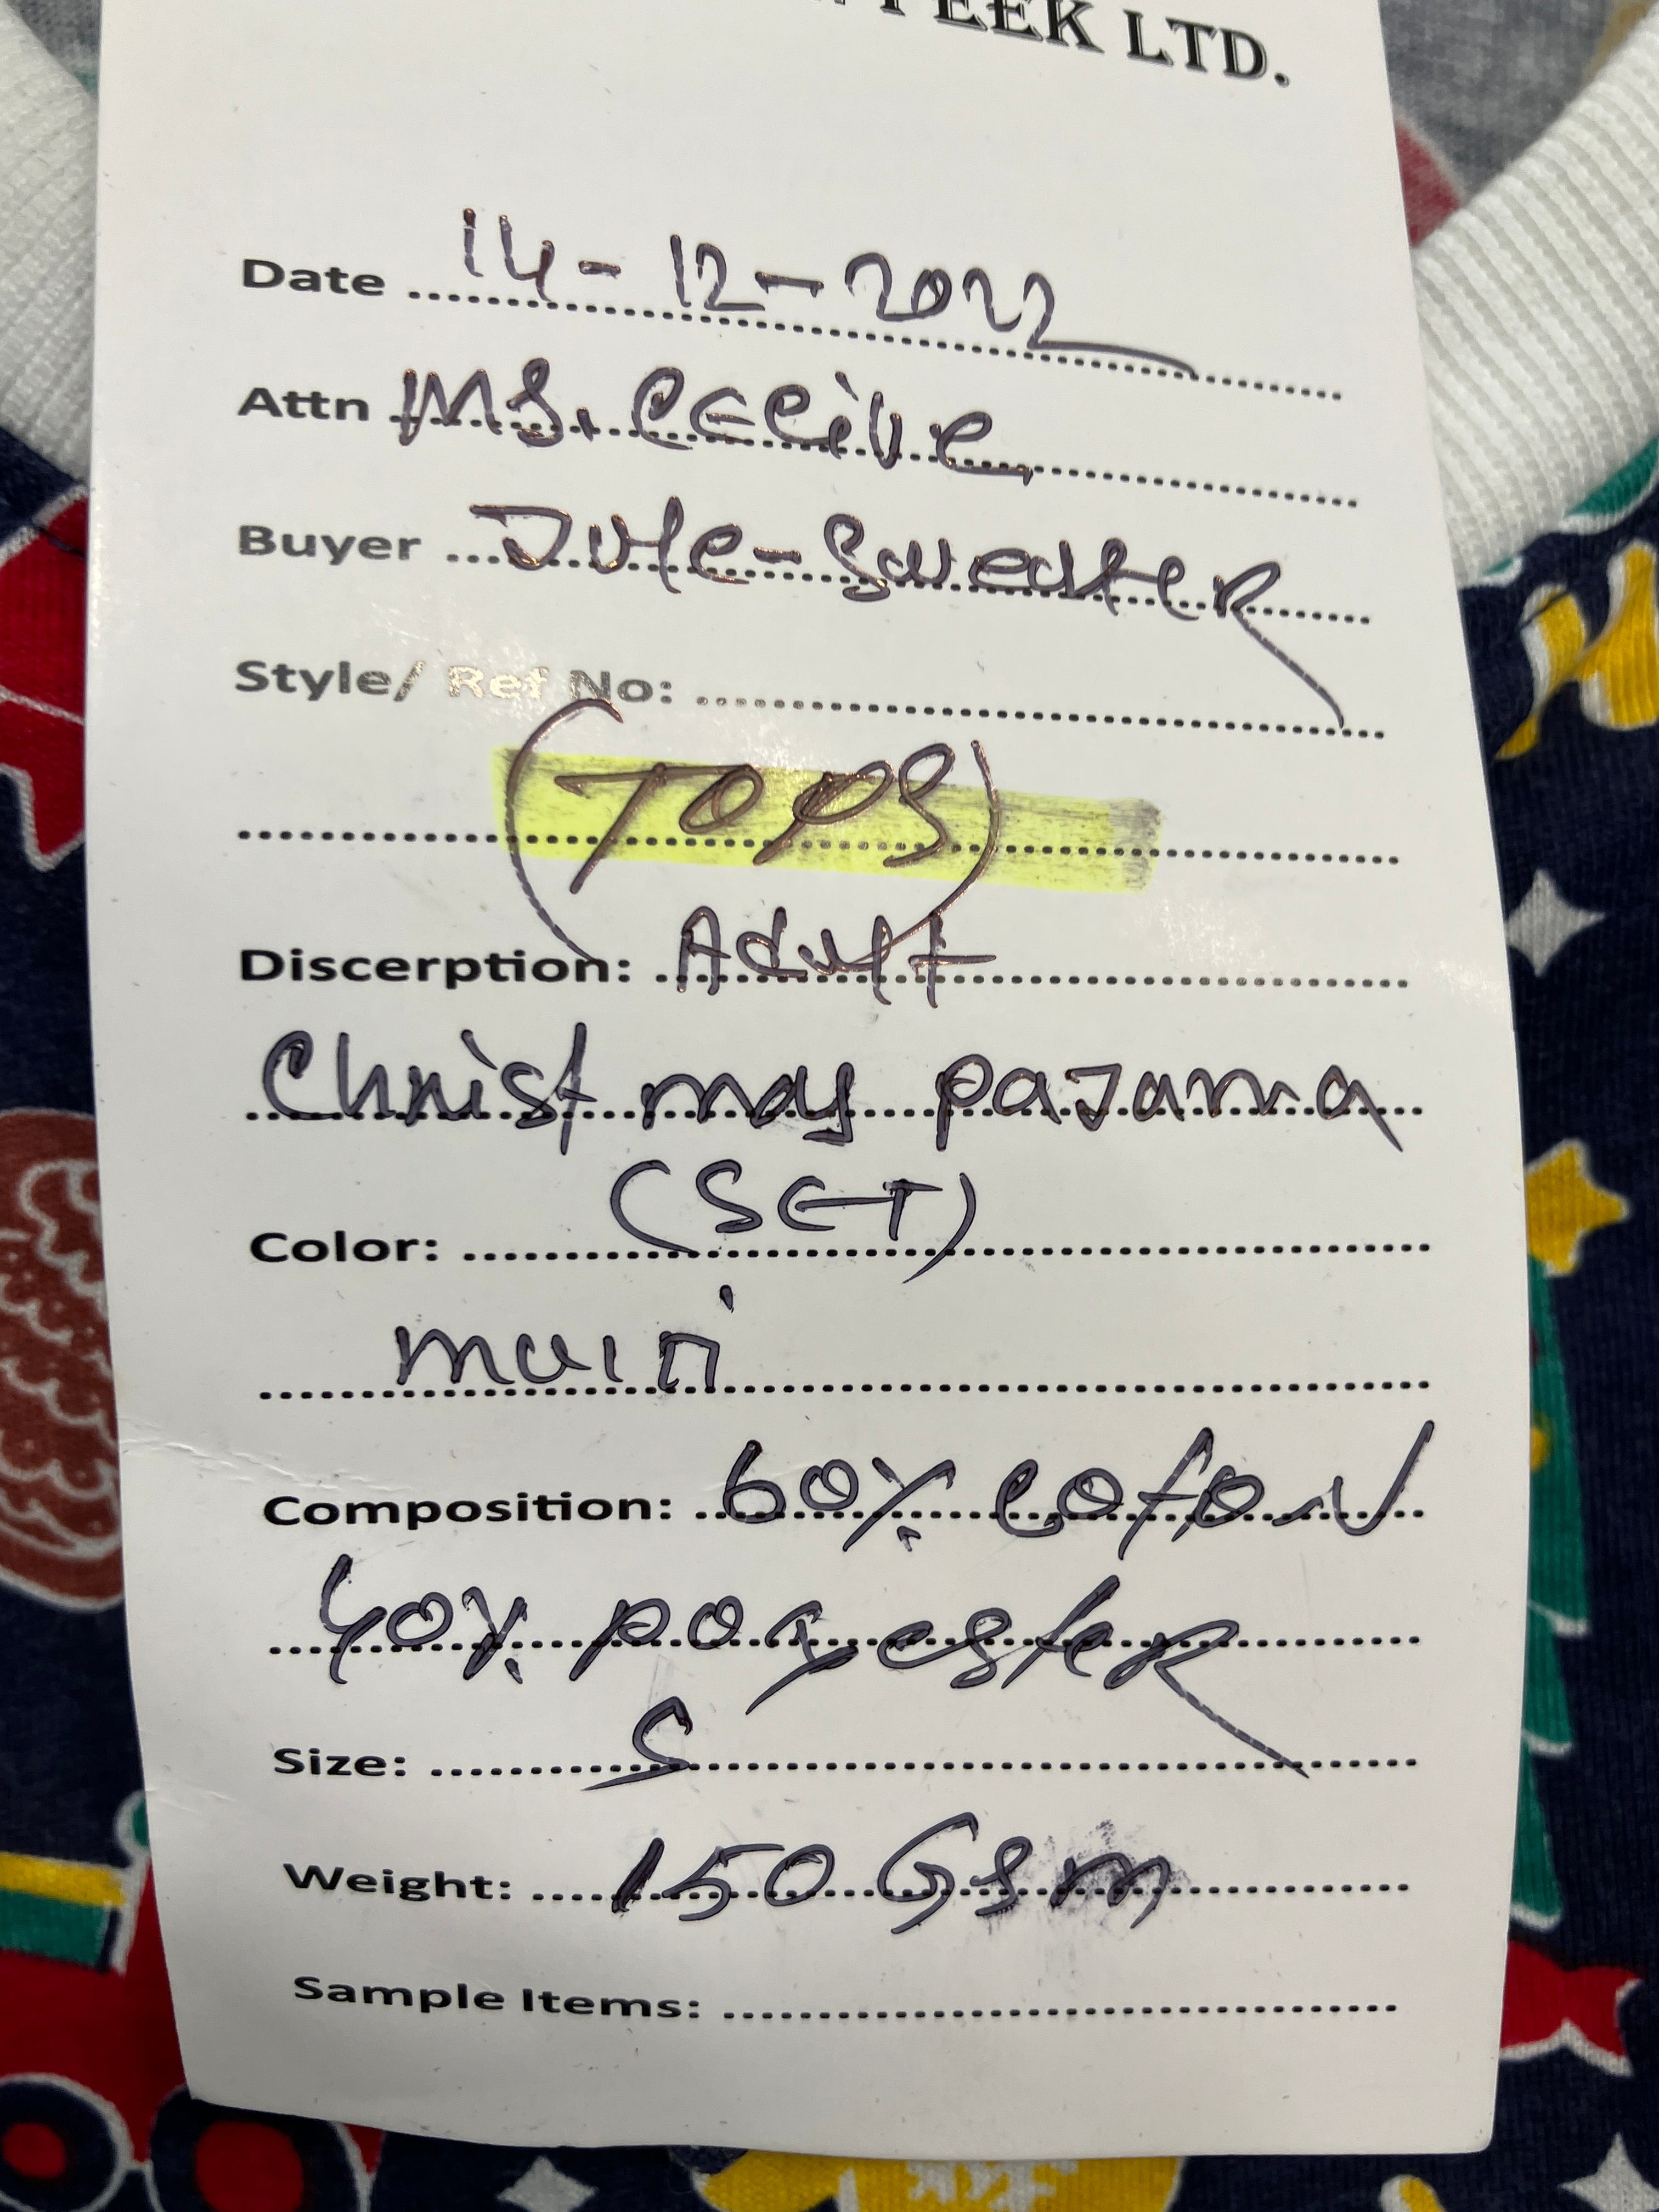 PEEK LTD.
Date 14-12-2022
Attn MS. Cecile
Buyer Jule-Sweater
Style/ Ref No:
(TOPS)
Discerption: Adult
Christmas pajama
(SET)
Color:
multi
Composition: 60% Coton
40% polyester
Size: S
Weight: 150 GSm
Sample Items: